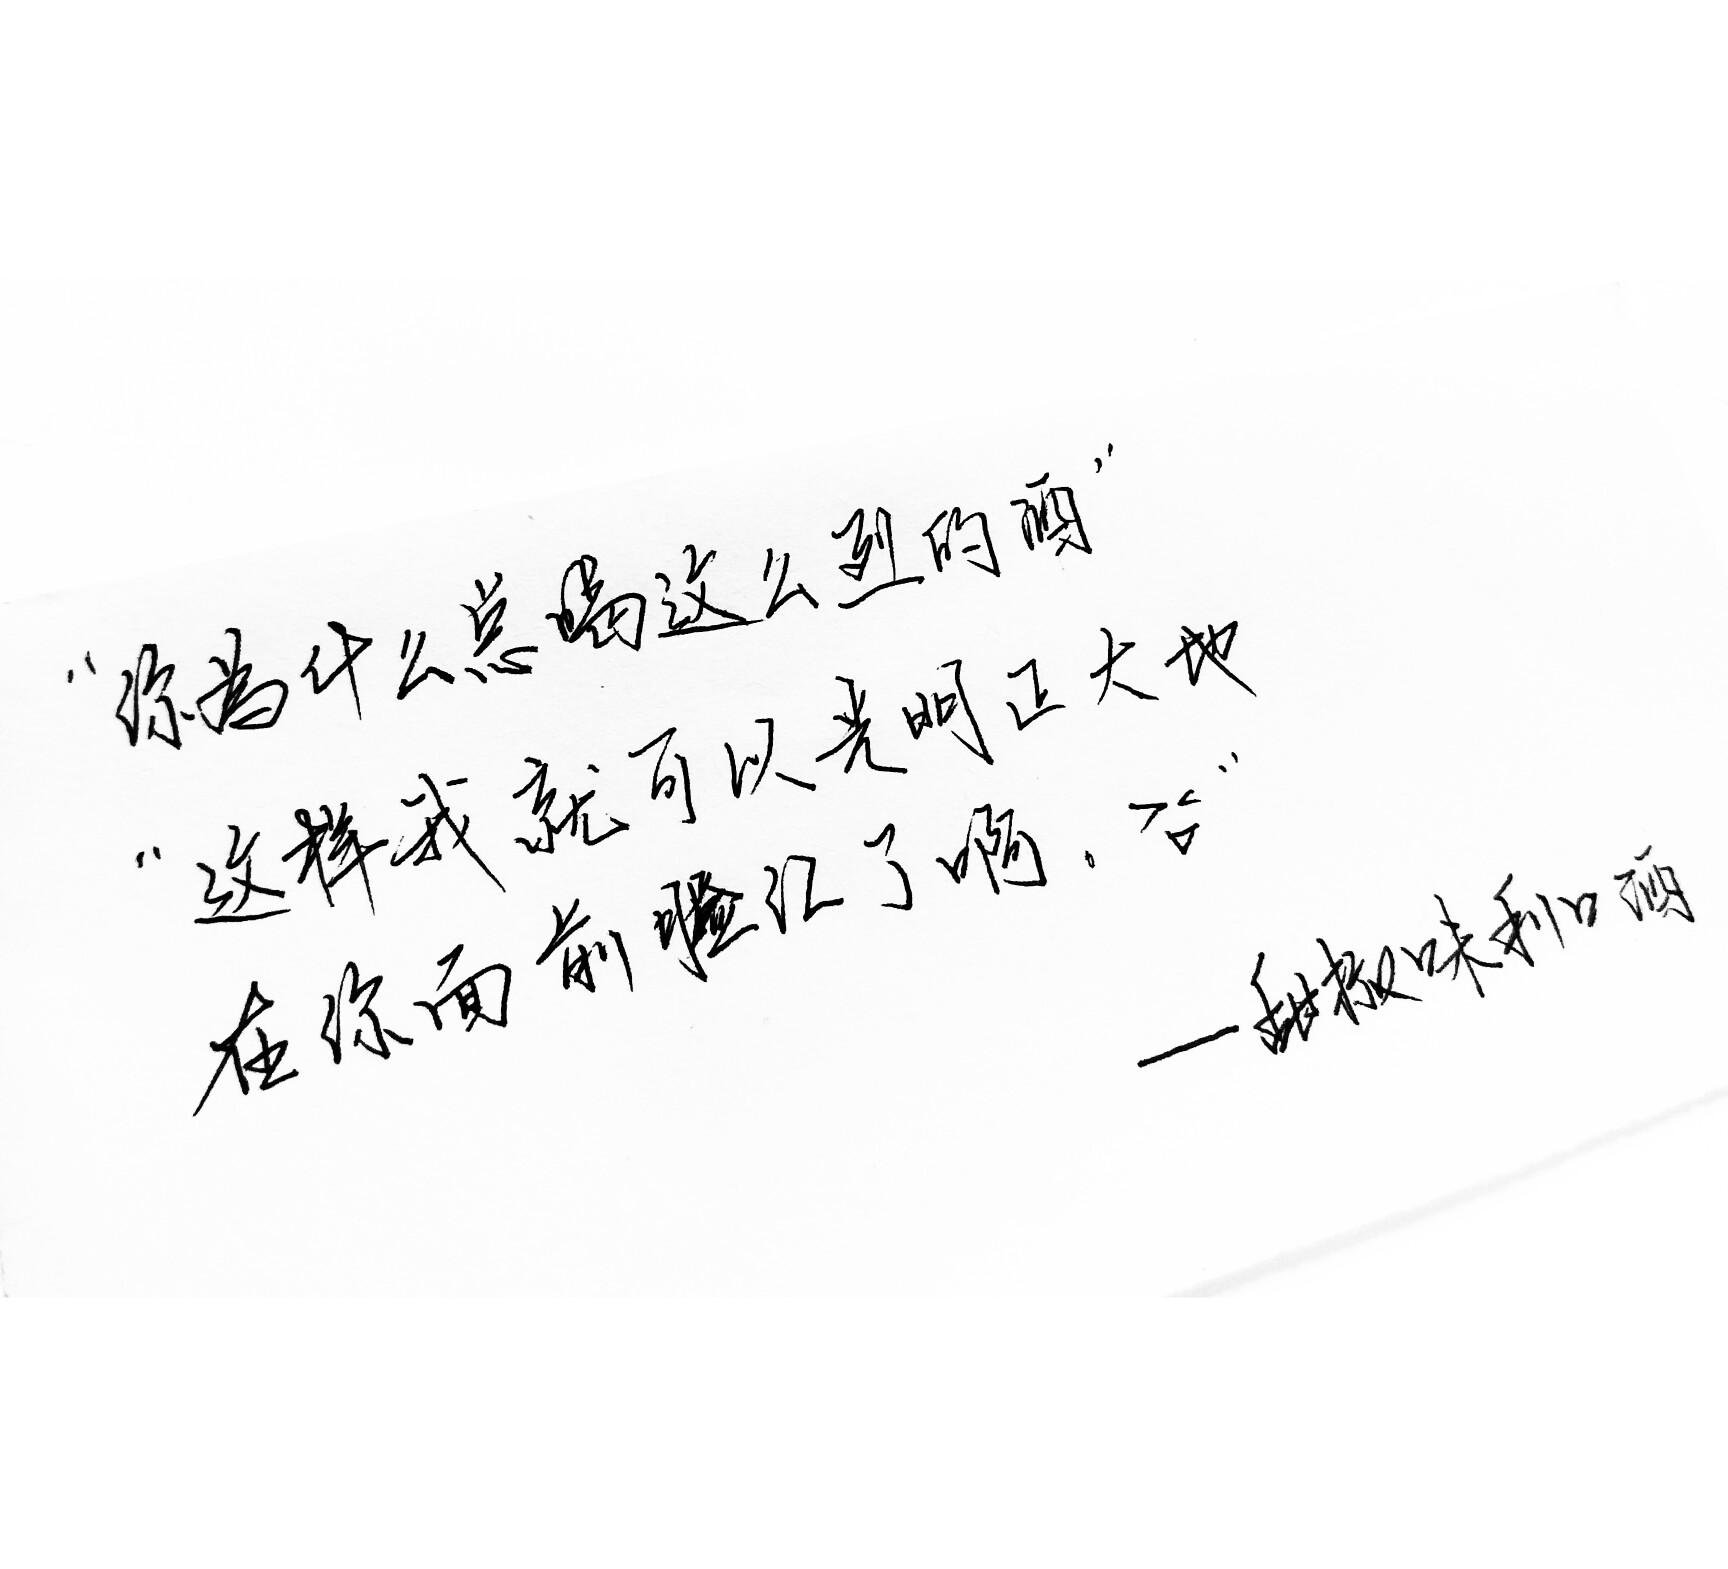 “你为什么总喝这么烈的酒”
“这样我就可以光明正大地
在你面前脸红了啊．𠮿”
—甜椒味利口酒